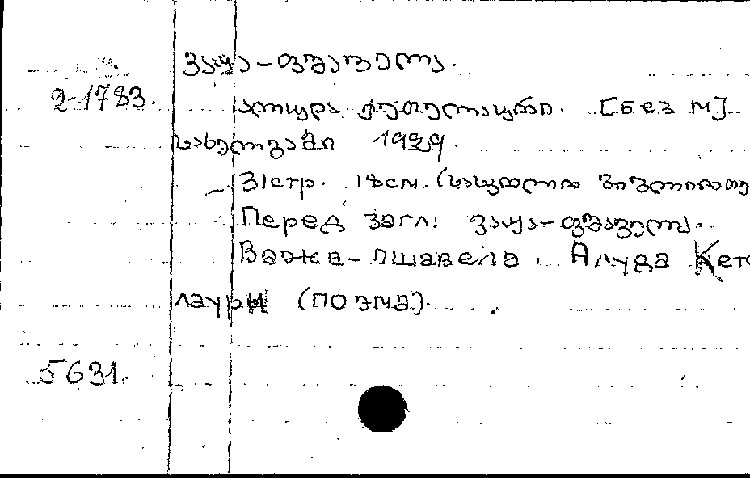 ვაჟა-ფშაველა.
2-1783.
ალუდა ქეთელაური. [без м]
სახელგამი 1929
31стр. 18см. (სასკოლო ბიბლიოთე
Перед загл: ვაჟა-ფშაველა.
Важа-пшавела. Алуда Кето
лаури (поэма).
5631.